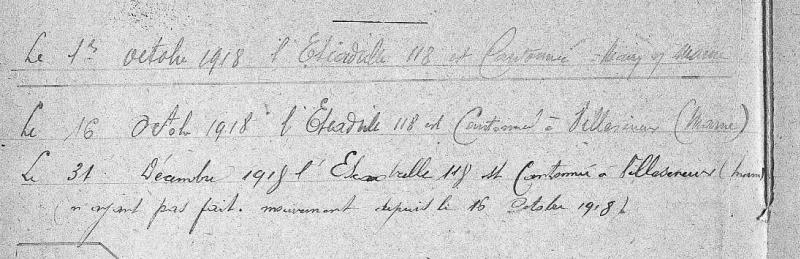 Le 1er octobre 1918 l'Escadrille 118 est Cantonnée Mairy s/ Marne
Le 16 Octobre 1918 l'Escadrille 118 est Cantonnée à Villeseneux (Marne)
Le 31 Décembre 1918 l'Escadrille 118 est Cantonnée à Villeseneux (Marne)
(n'ayant pas fait. mouvement depuis le 16 octobre 1918).